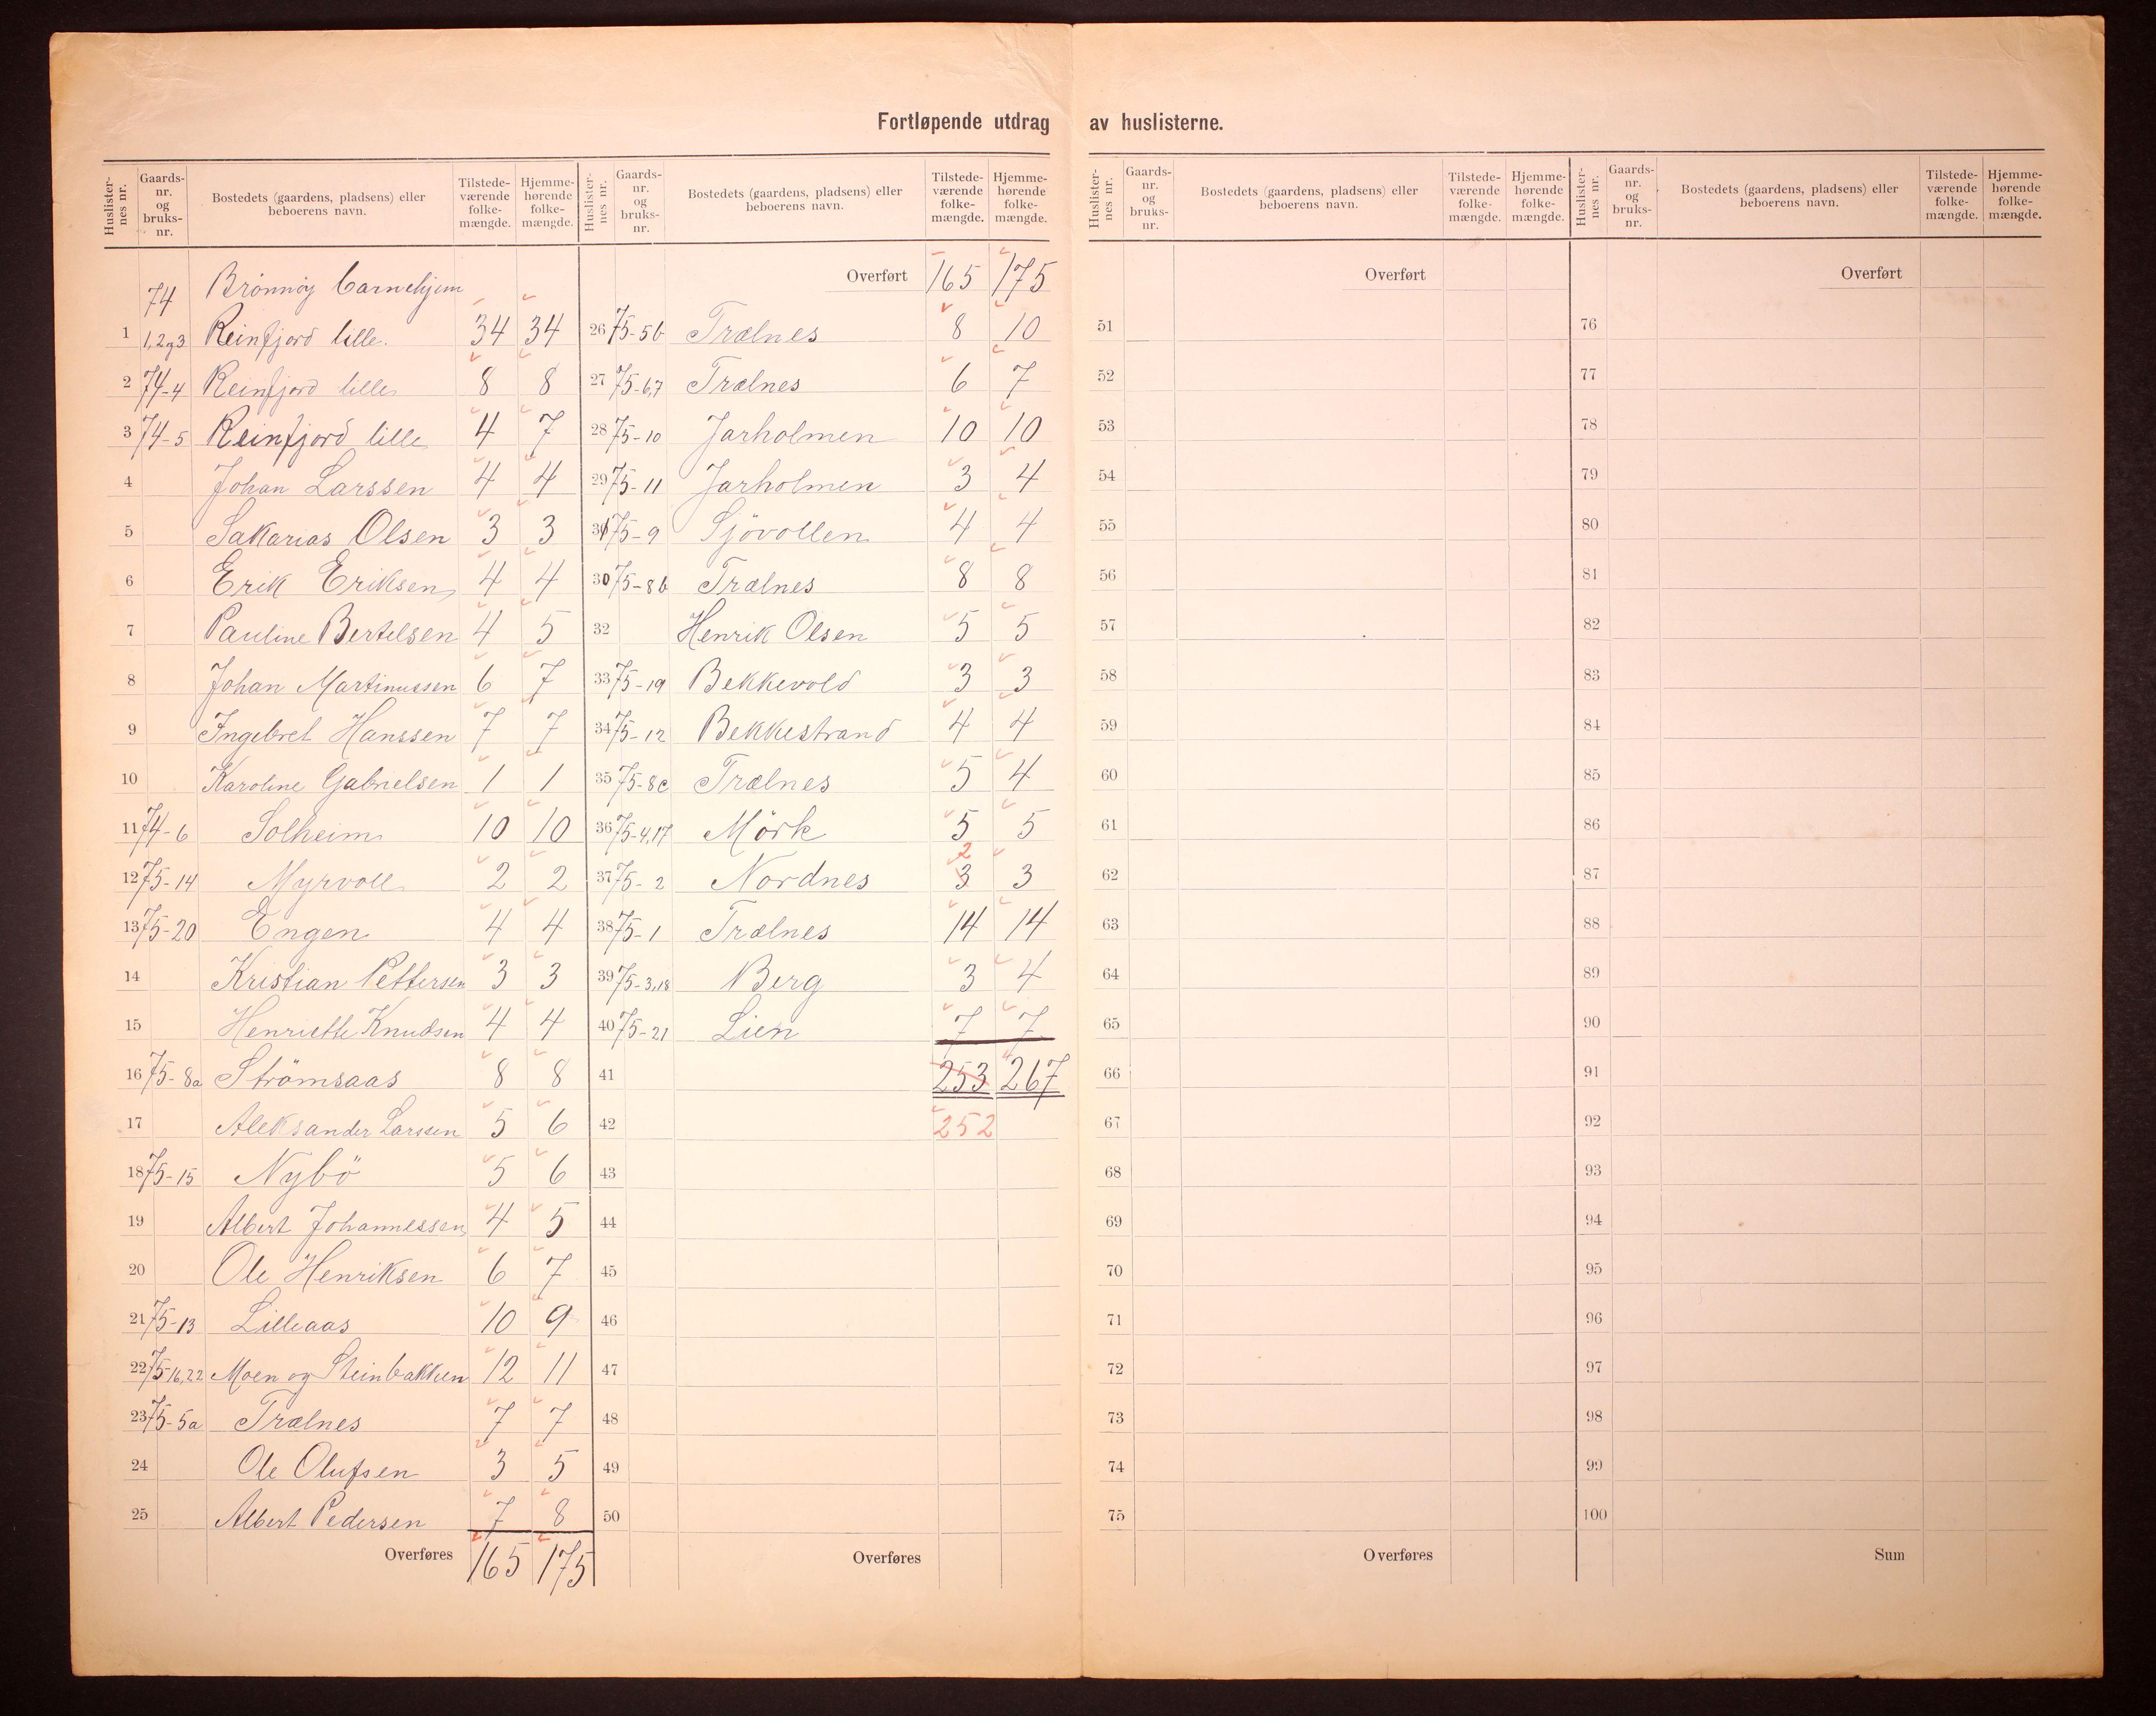 Fortløpende utdrag av huslisterne.
Huslisternes nr. Gaards-nr. og bruks-nr. Bostedets (gaardens, pladsens) eller beboerens navn. Tilstedeværende folkemængde. Hjemmehørende folkemængde.
74 Brønnøy barnehjem
1 1,2og3 Reinfjord lille. 34 34
2 74-4 Reinfjord lille 8 8
3 74-5 Reinfjord lille 4 7
4 Johan Larssen 4 4
5 Sakarias Olsen 3 3
6 Erik Eriksen 4 4
7 Pauline Bertelsen 4 5
8 Johan Martinussen 6 7
9 Ingebret Hanssen 7 7
10 Karoline Gabrielsen 1 1
11 74-6 Solheim 10 10
12 75-14 Myrvoll 2 2
13 75-20 Engen 4 4
14 Kristian Pettersen 3 3
15 Henriette Knudsen 4 4
16 75-8a Strömsaas 8 8
17 Aleksander Larssen 5 6
18 75-15 Nybö 5 6
19 Albert Johannessen 4 5
20 Ole Henriksen 6 7
21 75-13 Lilleaas 10 9
22 75-16,22 Moen og Steinbakken 12 11
23 75-5a Trælnes 7 7
24 Ole Olufsen 3 5
25 Albert Pedersen 7 8
Overføres 165 175
Huslisternes nr. Gaards-nr. og bruks-nr. Bostedets (gaardens, pladsens) eller beboerens navn. Tilstedeværende folkemængde. Hjemmehørende folkemængde.
Overført 165 175
26 75-5b Trælnes 8 10
27 75-6,7 Trælnes 6 7
28 75-10 Jarholmen 10 10
29 75-11 Jarholmen 3 4
31 75-9 Sjövollen 4 4
30 75-8b Trælnes 8 8
32 Henrik Olsen 5 5
33 75-19 Bekkevold 3 3
34 75-12 Bekkestrand 4 4
35 75-8c Trælnes 5 4
36 75-4,17 Mörk 5 5
37 75-2 Nordnes 3 2 3
38 75-1 Trælnes 14 14
39 75-3,18 Berg 3 4
40 75-21 Lien 7 7
41 253 267
42 252
43
44
45
46
47
48
49
50
Overføres
Huslisternes nr. Gaards-nr. og bruks-nr. Bostedets (gaardens, pladsens) eller beboerens navn. Tilstedeværende folkemængde. Hjemmehørende folkemængde.
Overført
51
52
53
54
55
56
57
58
59
60
61
62
63
64
65
66
67
68
69
70
71
72
73
74
75
Overføres
Huslisternes nr. Gaards-nr. og bruks-nr. Bostedets (gaardens, pladsens) eller beboerens navn. Tilstedeværende folkemængde. Hjemmehørende folkemængde.
Overført
76
77
78
79
80
81
82
83
84
85
86
87
88
89
90
91
92
93
94
95
96
97
98
99
100
Sum